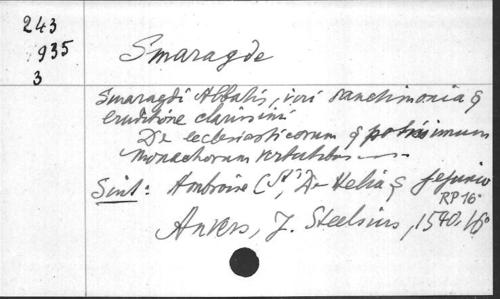 243
935
3
Smaragde
Smaragdi Abbatis, viri sanctimonia &
eruditione clarissimi
De ecclesiasticorum & potissimum
monachorum virtutibus
Sint: Ambroise (St), De Helia & Jejunio
RP 16
Anvers, J. Steelsius, 1540, 16°